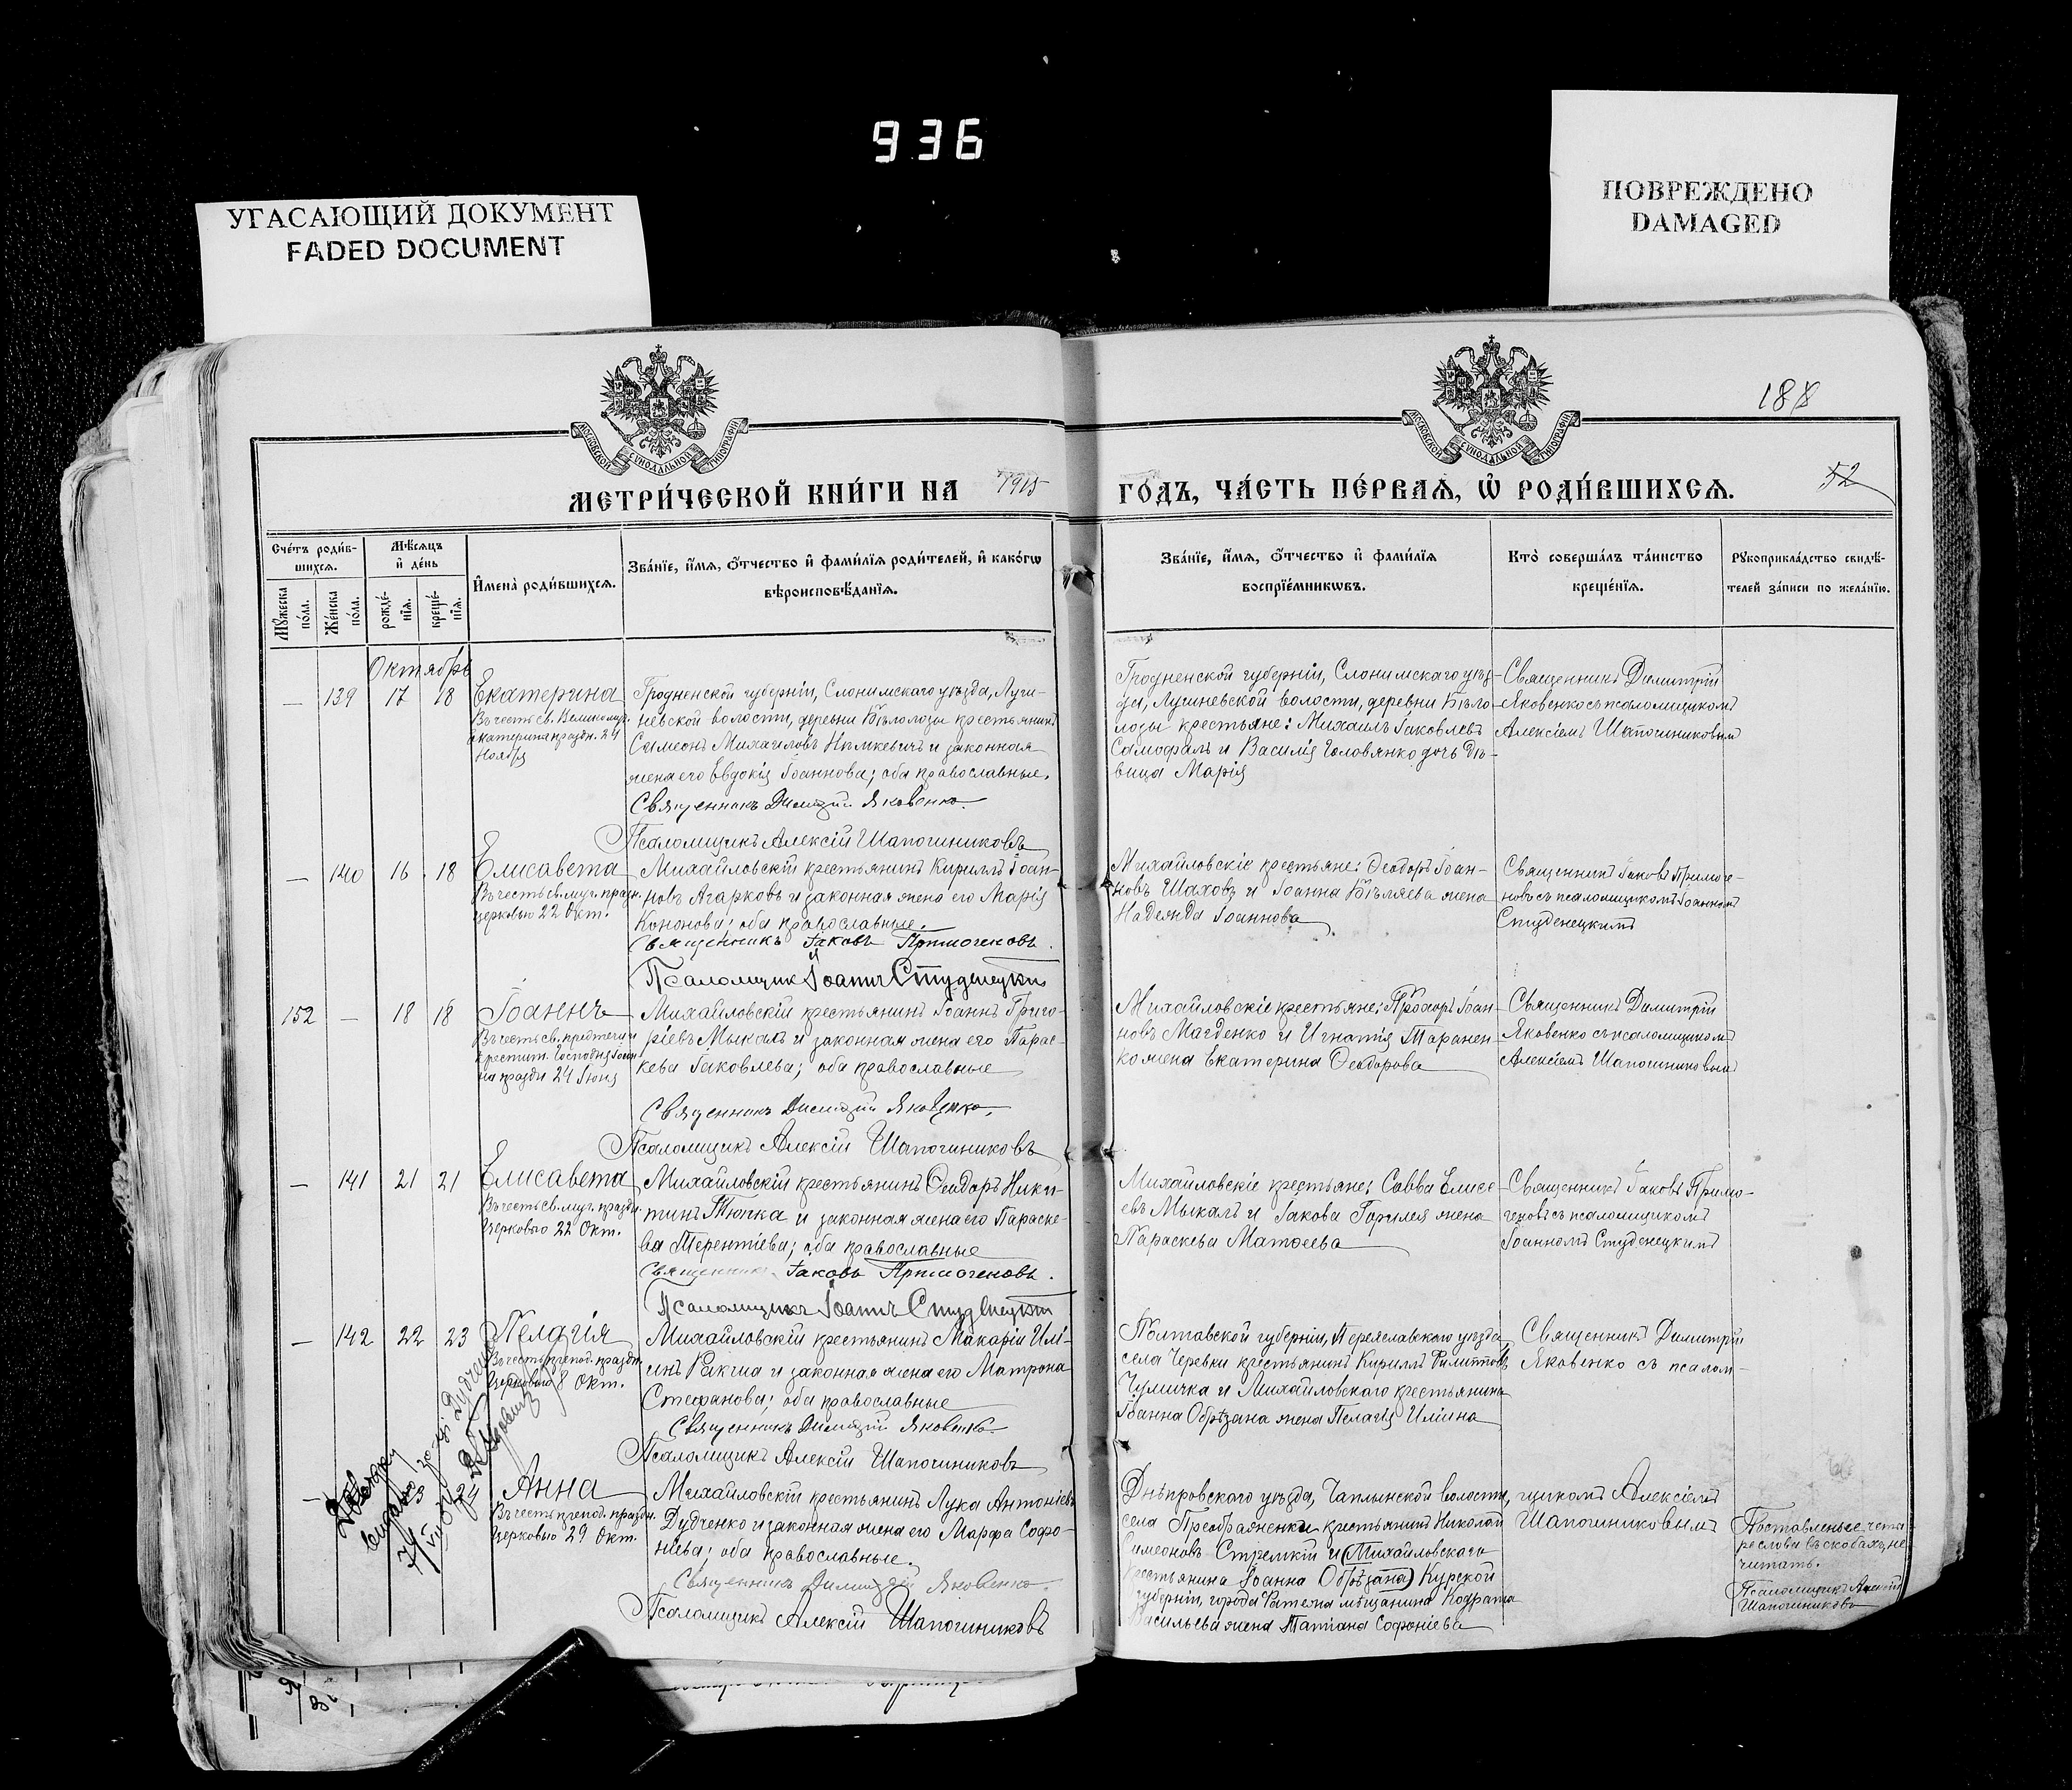 936
УГАСАЮЩИЙ ДОКУМЕНТ
FADED DOCUMENT
ПОВРЕЖДЕНО
DAMAGED
МОСКОВСКОЙ СѴНОДАЛЬНОЙ ТИПОГРАФІИ
МОСКОВСКОЙ СѴНОДАЛЬНОЙ ТИПОГРАФІИ
188
МЕТРИ́ЧЕСКОЙ КНИ́ГИ НА 1915 ГО́ДЪ, ЧА́СТЬ ПЕ́РВАѦ, Ѡ҆ РОДИ́ВШИХСѦ.
52
Сче́тъ роди́в-
шихсѧ.
Мꙋ́жеска по́ла.
Же́нска по́ла.
Мѣ́сѧцъ и҆ де́нь
рожде́-
нїѧ.
креще́-
нїѧ.
И҆мена̀ роди́вшихсѧ.
Зва́нїе, и҆́мѧ, ѻ҆́тчество и҆ фами́лїѧ роди́телей, и҆ како́гѡ
вѣроисповѣ́данїѧ.
Зва́нїе, и҆́мѧ, ѻ҆́тчество и҆ фами́лїѧ
воспрїе́мникѡвъ.
Кто̀ соверша́лъ та́инство
креще́нїѧ.
Рꙋкоприкла́дство свидѣ́-
телей за́писи по жела́нїю.
Октябрь
— 139 17 18 Екатерина
Въ честь св. Великомуч.
Екатерины праздн. 24
Ноября
Гродненской губерніи, Слонимскаго уѣзда, Лучи-
невской волости, деревни Бѣлолозы крестьянинъ
Симеонъ Михаиловъ Нимкевичъ и законная
жена его Евдокія Іоаннова; оба православные.
Священникъ Димитрій Яковенко.
Псаломщикъ Алексій Шапошниковъ
Гродненской губерніи, Слонимскаго уѣз-
да, Лучиневской волости, деревни Бѣло-
лозы крестьяне: Михаилъ Іаковлевъ
Самофалъ и Василія Головянко дочь дѣ-
вица Марія
Священникъ Димитрій
Яковенко съ псаломщикомъ
Алексіемъ Шапошниковымъ
— 140 16 18 Елисавета
Въ честь св. муч. празн.
церковью 22 Окт.
Михайловскій крестьянинъ Кириллъ Іоан-
новъ Агарковъ и законная жена его Марія
Кононова; оба православные.
Священникъ Іаковъ Примогеновъ.
Псаломщикъ Іоаннъ Студенецкій
Михайловскіе крестьяне: Ѳеодоръ Іоан-
новъ Шаховъ и Іоанна Бѣляева жена
Надежда Іоаннова
Священникъ Іаковъ Примоге-
новъ съ псаломщикомъ Іоанномъ
Студенецкимъ
152 — 18 18 Іоаннъ
Въ честь св. предтечи и
крестит. Господня Іоан.
на праздн 24 Іюня
Михайловскій крестьянинъ Іоаннъ Григо-
ріевъ Мыкалъ и законная жена его Парас-
кева Іаковлева; оба православные
Священникъ Димитрій Яковенко.
Псаломщикъ Алексій Шапошниковъ
Михайловскіе крестьяне: Прохоръ Іоан-
новъ Магденко и Игнатія Таранен-
ко жена Екатерина Ѳеодорова
Священникъ Димитрій
Яковенко съ псаломщикомъ
Алексіемъ Шапошниковымъ
— 141 21 21 Елисавета
Въ честь св. муч. праздн.
церковью 22 Окт.
Михайловскій крестьянинъ Ѳеодоръ Ники-
тинъ Тюпка и законная жена его Параске-
ва Терентіева; оба православные
Священникъ Іаковъ Примогеновъ.
Псаломщикъ Іоаннъ Студенецкій
Михайловскіе крестьяне: Савва Елисе-
евъ Мыкалъ и Іакова Горилея жена
Параскева Матѳеева
Священникъ Іаковъ Примо-
геновъ съ псаломщикомъ
Іоанномъ Студенецкимъ
— 142 22 23 Пелагія
Въ честь препод. праздн.
церковью 8 Окт.
Михайловскій крестьянинъ Макарій Илі-
инъ Ракша и законная жена его Матрона
Стефанова; оба православные
Священникъ Димитрій Яковенко.
Псаломщикъ Алексій Шапошниковъ
Полтавской губерніи, Переяславскаго уѣзда,
села Черевки крестьянинъ Кириллъ Филипповъ
Чумичка и Михайловскаго крестьянина
Іоанна Обрѣзана жена Пелагія Иліина
Священникъ Димитрій
Яковенко съ псалом-
Анна
Въ честь препод. праздн.
церковью 29 Окт.
Михайловскій крестьянинъ Лука Антоніевъ
Дудченко и законная жена его Марфа Софо-
ніева; оба православные.
Священникъ Димитрій Яковенко.
Псаломщикъ Алексій Шапошниковъ
Днѣпровскаго уѣзда, Чаплынской волости,
села Преображенки крестьянинъ Николай
Симеоновъ Стремкій и (Михайловскаго
крестьянина Іоанна Обрѣзана) Курской
губерніи, города Фатежа мѣщанина Кодрата
Васильева жена Татіана Софоніева
щикомъ Алексіемъ
Шапошниковымъ
Поставленые четы-
ре слова въ скобахъ, не
читать.
Псаломщикъ Алексій
Шапошниковъ